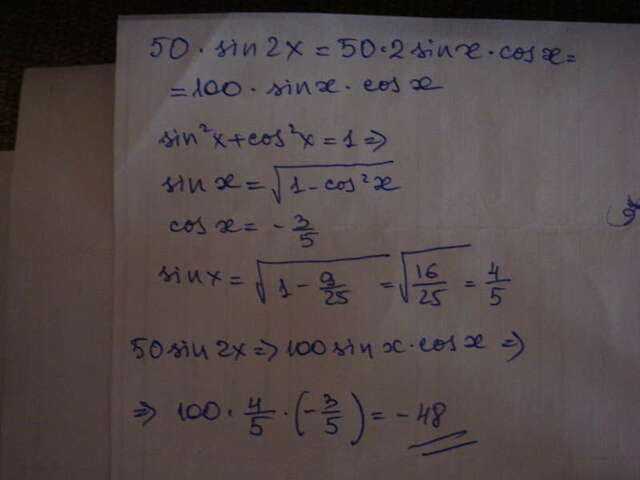 50 · sin 2x = 50 · 2 sin x · cos x =
= 100 · sin x · cos x
sin²x + cos²x = 1 ⇒
sin x = √(1 - cos²x)
cos x = - 3/5
sin x = √(1 - 9/25) = √(16/25) = 4/5
50 sin 2x ⇒ 100 sin x · cos x ⇒
⇒ 100 · 4/5 · (- 3/5) = - 48